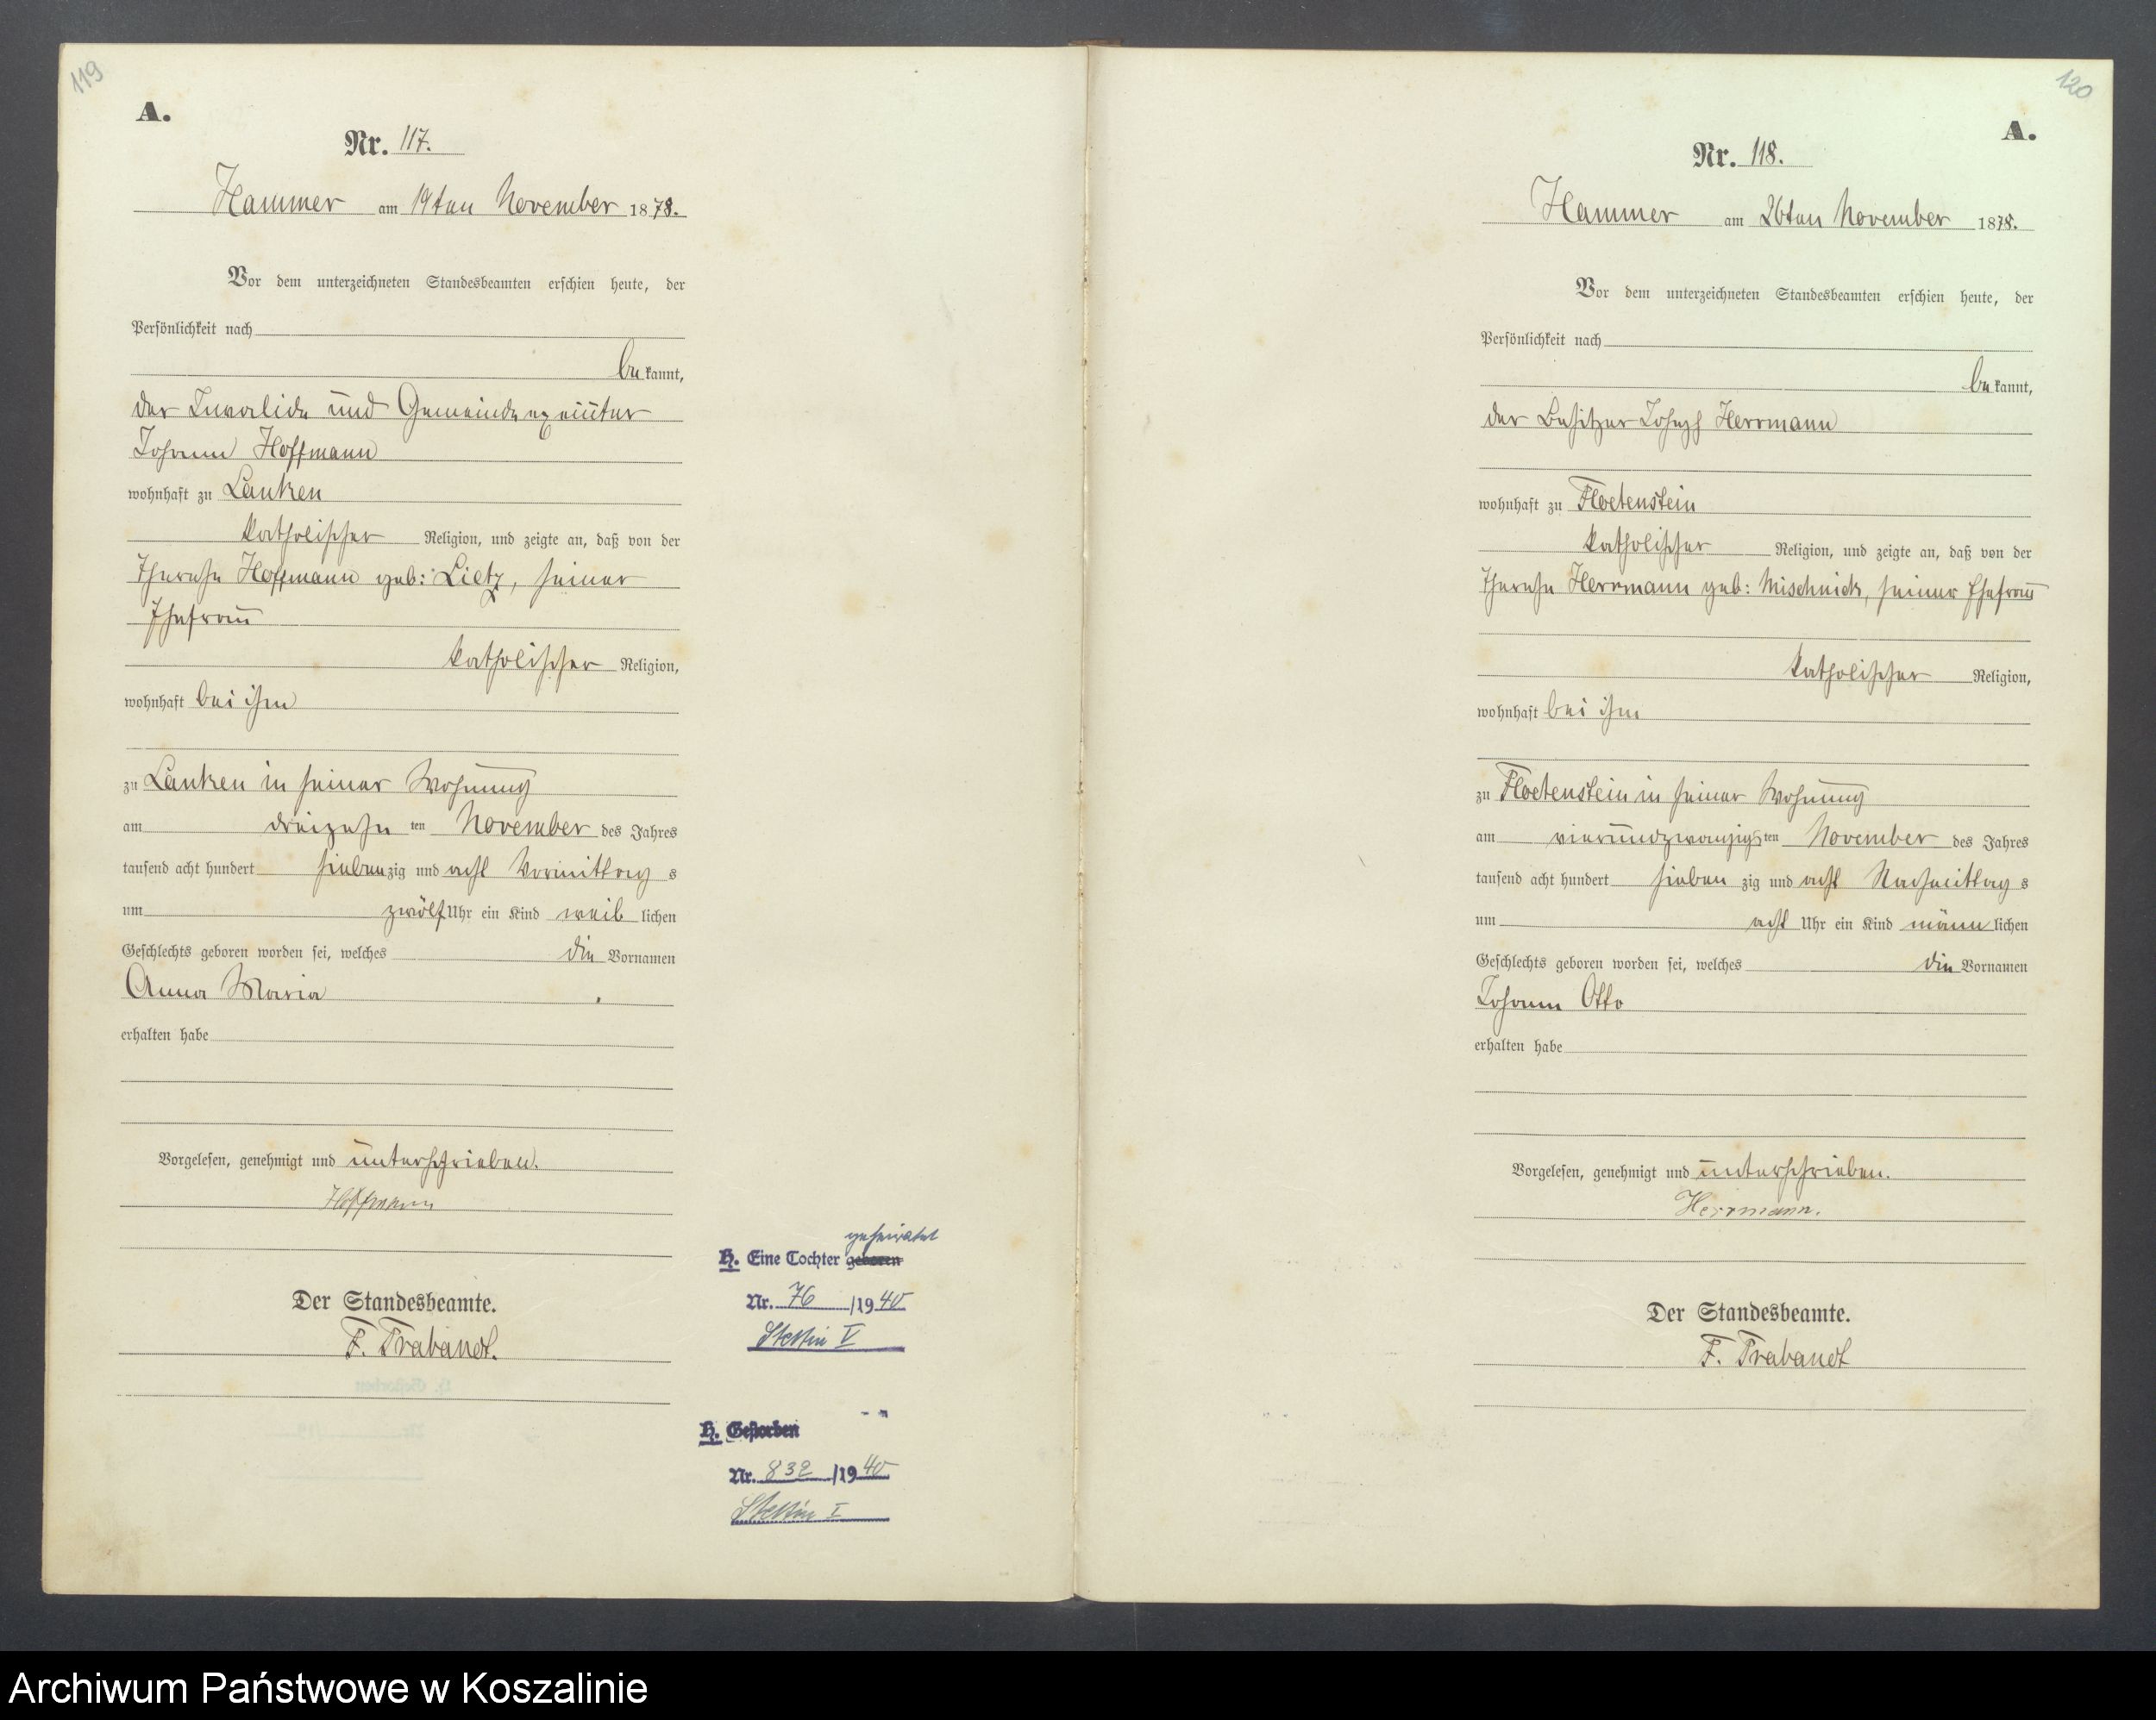 119
A.
Nr. 117.
Hammer am 19ten November 1878.
Vor dem unterzeichneten Standesbeamten erschien heute, der
Persönlichkeit nach
bekannt,
der Invalide und Gemeindeexecutor
Johann Hoffmann
wohnhaft zu Lanken
katholischer Religion, und zeigte an, daß von der
Therese Hoffmann geb: Lietz, seiner
Ehefrau
katholischer Religion,
wohnhaft bei ihm
zu Lanken in seiner Wohnung
am dreizehnten November des Jahres
tausend acht hundert siebenzig und acht Vormittags
um zwölf Uhr ein Kind weiblichen
Geschlechts geboren worden sei, welches die Vornamen
Anna Maria
erhalten habe
Vorgelesen, genehmigt und unterschrieben.
Hoffmann
Der Standesbeamte.
F. Trabandt.
geheiratet
H. Eine Tochter geboren
Nr. 76 /1940
Stettin V
H. Gestorben
Nr. 832 /1940
Stettin I
120
A.
Nr. 118.
Hammer am 26ten November 1878.
Vor dem unterzeichneten Standesbeamten erschien heute, der
Persönlichkeit nach
bekannt,
der Besitzer Joseph Herrmann
wohnhaft zu Floetenstein
katholischer Religion, und zeigte an, daß von der
Therese Herrmann geb: Mischnick, seiner Ehefrau
katholischer Religion,
wohnhaft bei ihm
zu Floetenstein in seiner Wohnung
am vierundzwanzigsten November des Jahres
tausend acht hundert siebenzig und acht Nachmittags
um acht Uhr ein Kind männlichen
Geschlechts geboren worden sei, welches die Vornamen
Johann Otto
erhalten habe
Vorgelesen, genehmigt und unterschrieben.
Herrmann.
Der Standesbeamte.
F. Trabandt
Archiwum Państwowe w Koszalinie